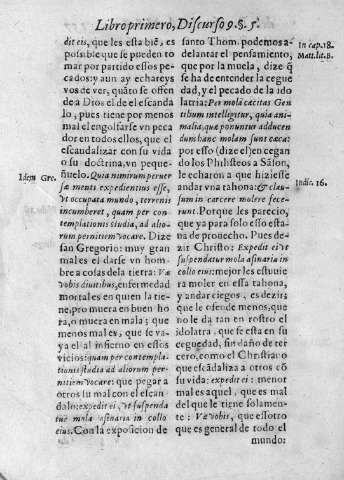 Libro primero, Discurso 9. §. 5.
dit eis, que les esta biē, es
possible que se pueden to
mar por partido essos pe-
cados: y aun ay echareys
vos de ver, quāto se offen
de a Dios el de el escanda
lo, pues tiene por menos
mal el engolfarse vn peca
dor en todos ellos, que el
escandalizar con su vida
o su doctrina, vn peque-
ñuelo. Quia nimirum peruer
sæ menti expedientius esset,
vt occupata mundo, terrenis
incumberet, quam per con-
templationis studia, ad alio-
rum pernitiem vocare. Dize
san Gregorio: muy gran
males el darse vn hom-
bre a cosas de la tierra: Væ
vobis diuitibus, enfermedad
mortales en quien la tie-
ne, pro muera en buen ho
ra, o muera en mala; que
menos mal es, que se va-
ya el al infierno en essos
vicios: quam per contempla-
tionis studia ad aliorum per-
nitiem vocare: que pegar a
otros su mal con el escan
dalo: expedit ei, vt suspenda
tur mola asinaria in collo
eius. Con la exposicion de
Idem Gre.
santo Thom. podemos a-
delantar el pensamiento,
que por la muela, dize q̃
se ha de entender la cegue
dad, y el pecado de la ido
latria: Per mola cæcitas Gen
tibum intelligitur, quia ani-
malia, quæ ponuntur adducen
dum banc molam sunt cæca:
por esso (dize el) en cegan
do los Philisteos a Sāson,
le echaron a que hiziesse
andar vna tahona: & clau-
sum in carcere molere fece-
runt. Porque les parecio,
que ya para solo esso esta-
na de prouecho. Pues de-
zir Christo: Expedit ei vt
suspendatur mola asinaria in
collo eius: mejor les estuuie
ra moler en essa tahona,
y andar ciegos, es dezir;
que le ofende menos, que
no le da tan en rostro el
idolatra, que se esta en su
ceguedad, sin daño de ter
cero, como el Christiano
que escādaliza a otros cō
su vida: expedit ei: menor
mal es aquel, que es mal
del que le tiene solamen-
te: Væ vobis, que essotro
que es general de todo el
mundo:
In cap. 18.
Matt. la. 8.
Iudic. 16.